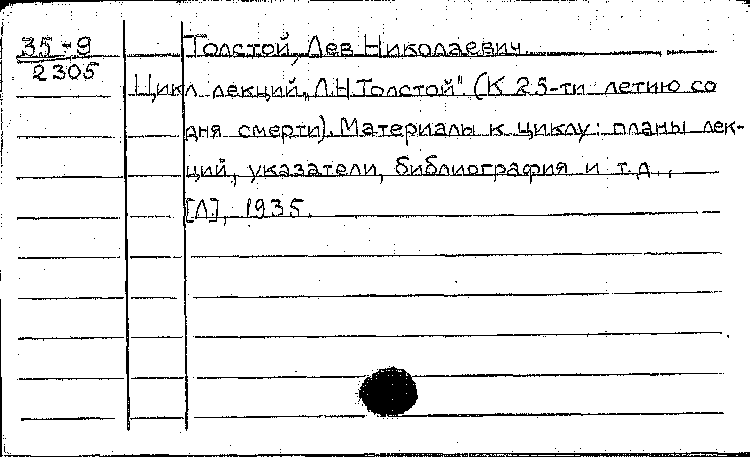 35-9
2305
Толстой, Лев Николаевич
Цикл лекций „Л.Н.Толстой". (К 25-ти летию со
дня смерти). Материалы к циклу: планы лек-
ций, указатели, библиография и т.д.,
[Л], 1935.